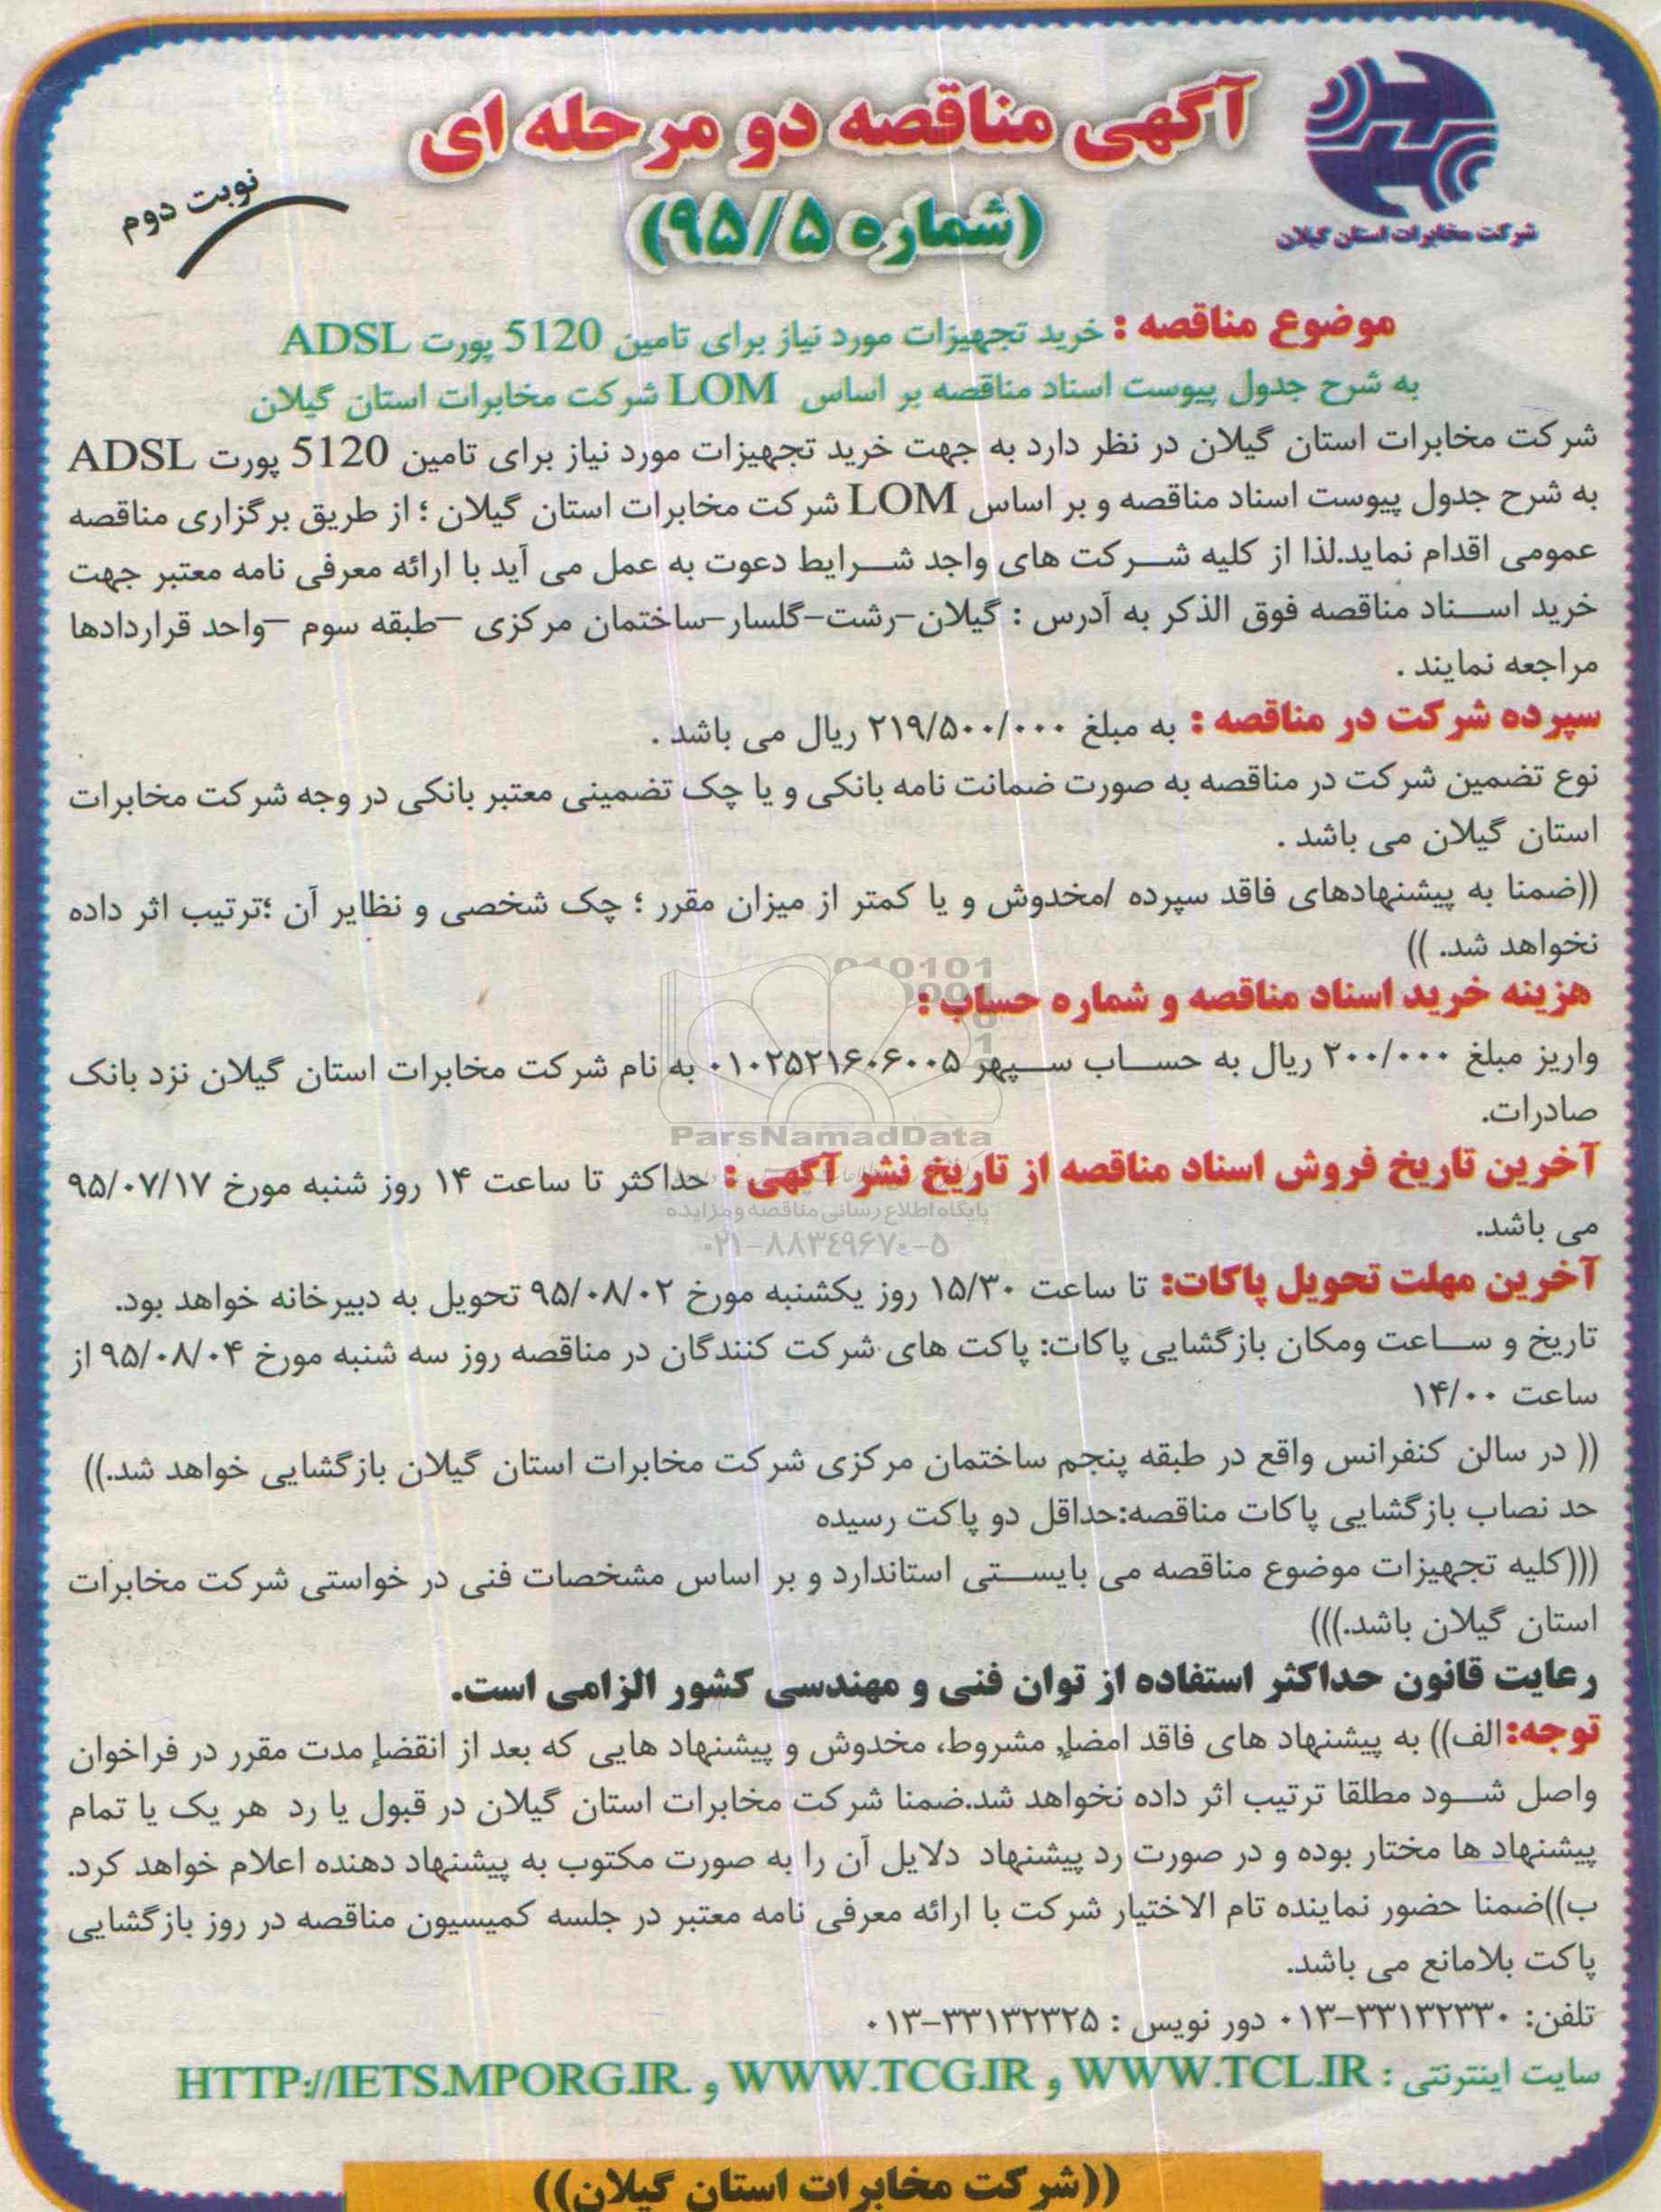 شرکت مخابرات استان گیلان
آگهی مناقصه دو مرحله ای
(شماره ۹۵/۵)
نوبت دوم
موضوع مناقصه : خرید تجهیزات مورد نیاز برای تامین 5120 پورت ADSL
به شرح جدول پیوست اسناد مناقصه بر اساس LOM شرکت مخابرات استان گیلان
شرکت مخابرات استان گیلان در نظر دارد به جهت خرید تجهیزات مورد نیاز برای تامین 5120 پورت ADSL
به شرح جدول پیوست اسناد مناقصه و بر اساس LOM شرکت مخابرات استان گیلان ؛ از طریق برگزاری مناقصه
عمومی اقدام نماید.لذا از کلیه شرکت های واجد شرایط دعوت به عمل می آید با ارائه معرفی نامه معتبر جهت
خرید اسناد مناقصه فوق الذکر به آدرس : گیلان-رشت-گلسار-ساختمان مرکزی -طبقه سوم -واحد قراردادها
مراجعه نمایند .
سپرده شرکت در مناقصه : به مبلغ ۲۱۹/۵۰۰/۰۰۰ ریال می باشد .
نوع تضمین شرکت در مناقصه به صورت ضمانت نامه بانکی و یا چک تضمینی معتبر بانکی در وجه شرکت مخابرات
استان گیلان می باشد .
((ضمنا به پیشنهادهای فاقد سپرده /مخدوش و یا کمتر از میزان مقرر ؛ چک شخصی و نظایر آن ؛ترتیب اثر داده
نخواهد شد. ))
هزینه خرید اسناد مناقصه و شماره حساب :
واریز مبلغ ۲۰۰/۰۰۰ ریال به حساب سپهر ۰۱۰۲۵۲۱۶۰۶۰۰۵ به نام شرکت مخابرات استان گیلان نزد بانک
صادرات.
ParsNamadData
آخرین تاریخ فروش اسناد مناقصه از تاریخ نشر آگهی : حداکثر تا ساعت ۱۴ روز شنبه مورخ ۹۵/۰۷/۱۷
پایگاه اطلاع رسانی مناقصه و مزایده
می باشد.
۰۲۱-۸۸۳۴۹۶۷۰-۵
آخرین مهلت تحویل پاکات: تا ساعت ۱۵/۳۰ روز یکشنبه مورخ ۹۵/۰۸/۰۲ تحویل به دبیرخانه خواهد بود.
تاریخ و ساعت ومکان بازگشایی پاکات: پاکت های شرکت کنندگان در مناقصه روز سه شنبه مورخ ۹۵/۰۸/۰۴ از
ساعت ۱۴/۰۰
(( در سالن کنفرانس واقع در طبقه پنجم ساختمان مرکزی شرکت مخابرات استان گیلان بازگشایی خواهد شد.))
حد نصاب بازگشایی پاکات مناقصه:حداقل دو پاکت رسیده
(((کلیه تجهیزات موضوع مناقصه می بایستی استاندارد و بر اساس مشخصات فنی در خواستی شرکت مخابرات
استان گیلان باشد.)))
رعایت قانون حداکثر استفاده از توان فنی و مهندسی کشور الزامی است.
توجه:الف)) به پیشنهاد های فاقد امضاِ، مشروط، مخدوش و پیشنهاد هایی که بعد از انقضاِ مدت مقرر در فراخوان
واصل شود مطلقا ترتیب اثر داده نخواهد شد.ضمنا شرکت مخابرات استان گیلان در قبول یا رد هر یک یا تمام
پیشنهاد ها مختار بوده و در صورت رد پیشنهاد دلایل آن را به صورت مکتوب به پیشنهاد دهنده اعلام خواهد کرد.
ب))ضمنا حضور نماینده تام الاختیار شرکت با ارائه معرفی نامه معتبر در جلسه کمیسیون مناقصه در روز بازگشایی
پاکت بلامانع می باشد.
تلفن: ۳۳۱۳۲۳۳۰-۰۱۳ دور نویس : ۳۳۱۳۲۳۲۵-۰۱۳
سایت اینترنتی : WWW.TCI.IR و WWW.TCG.IR و HTTP://IETS.MPORG.IR.
((شرکت مخابرات استان گیلان))